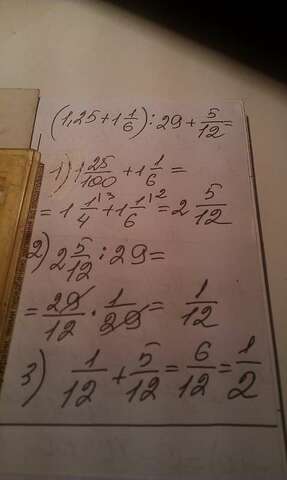 (1,25+1 1/6):29+5/12=
1) 1 25/100 + 1 1/6 =
= 1 1/4 ¹³ + 1 1/6 ¹² = 2 5/12
2) 2 5/12 : 29 =
= 29/12 · 1/29 = 1/12
3) 1/12 + 5/12 = 6/12 = 1/2